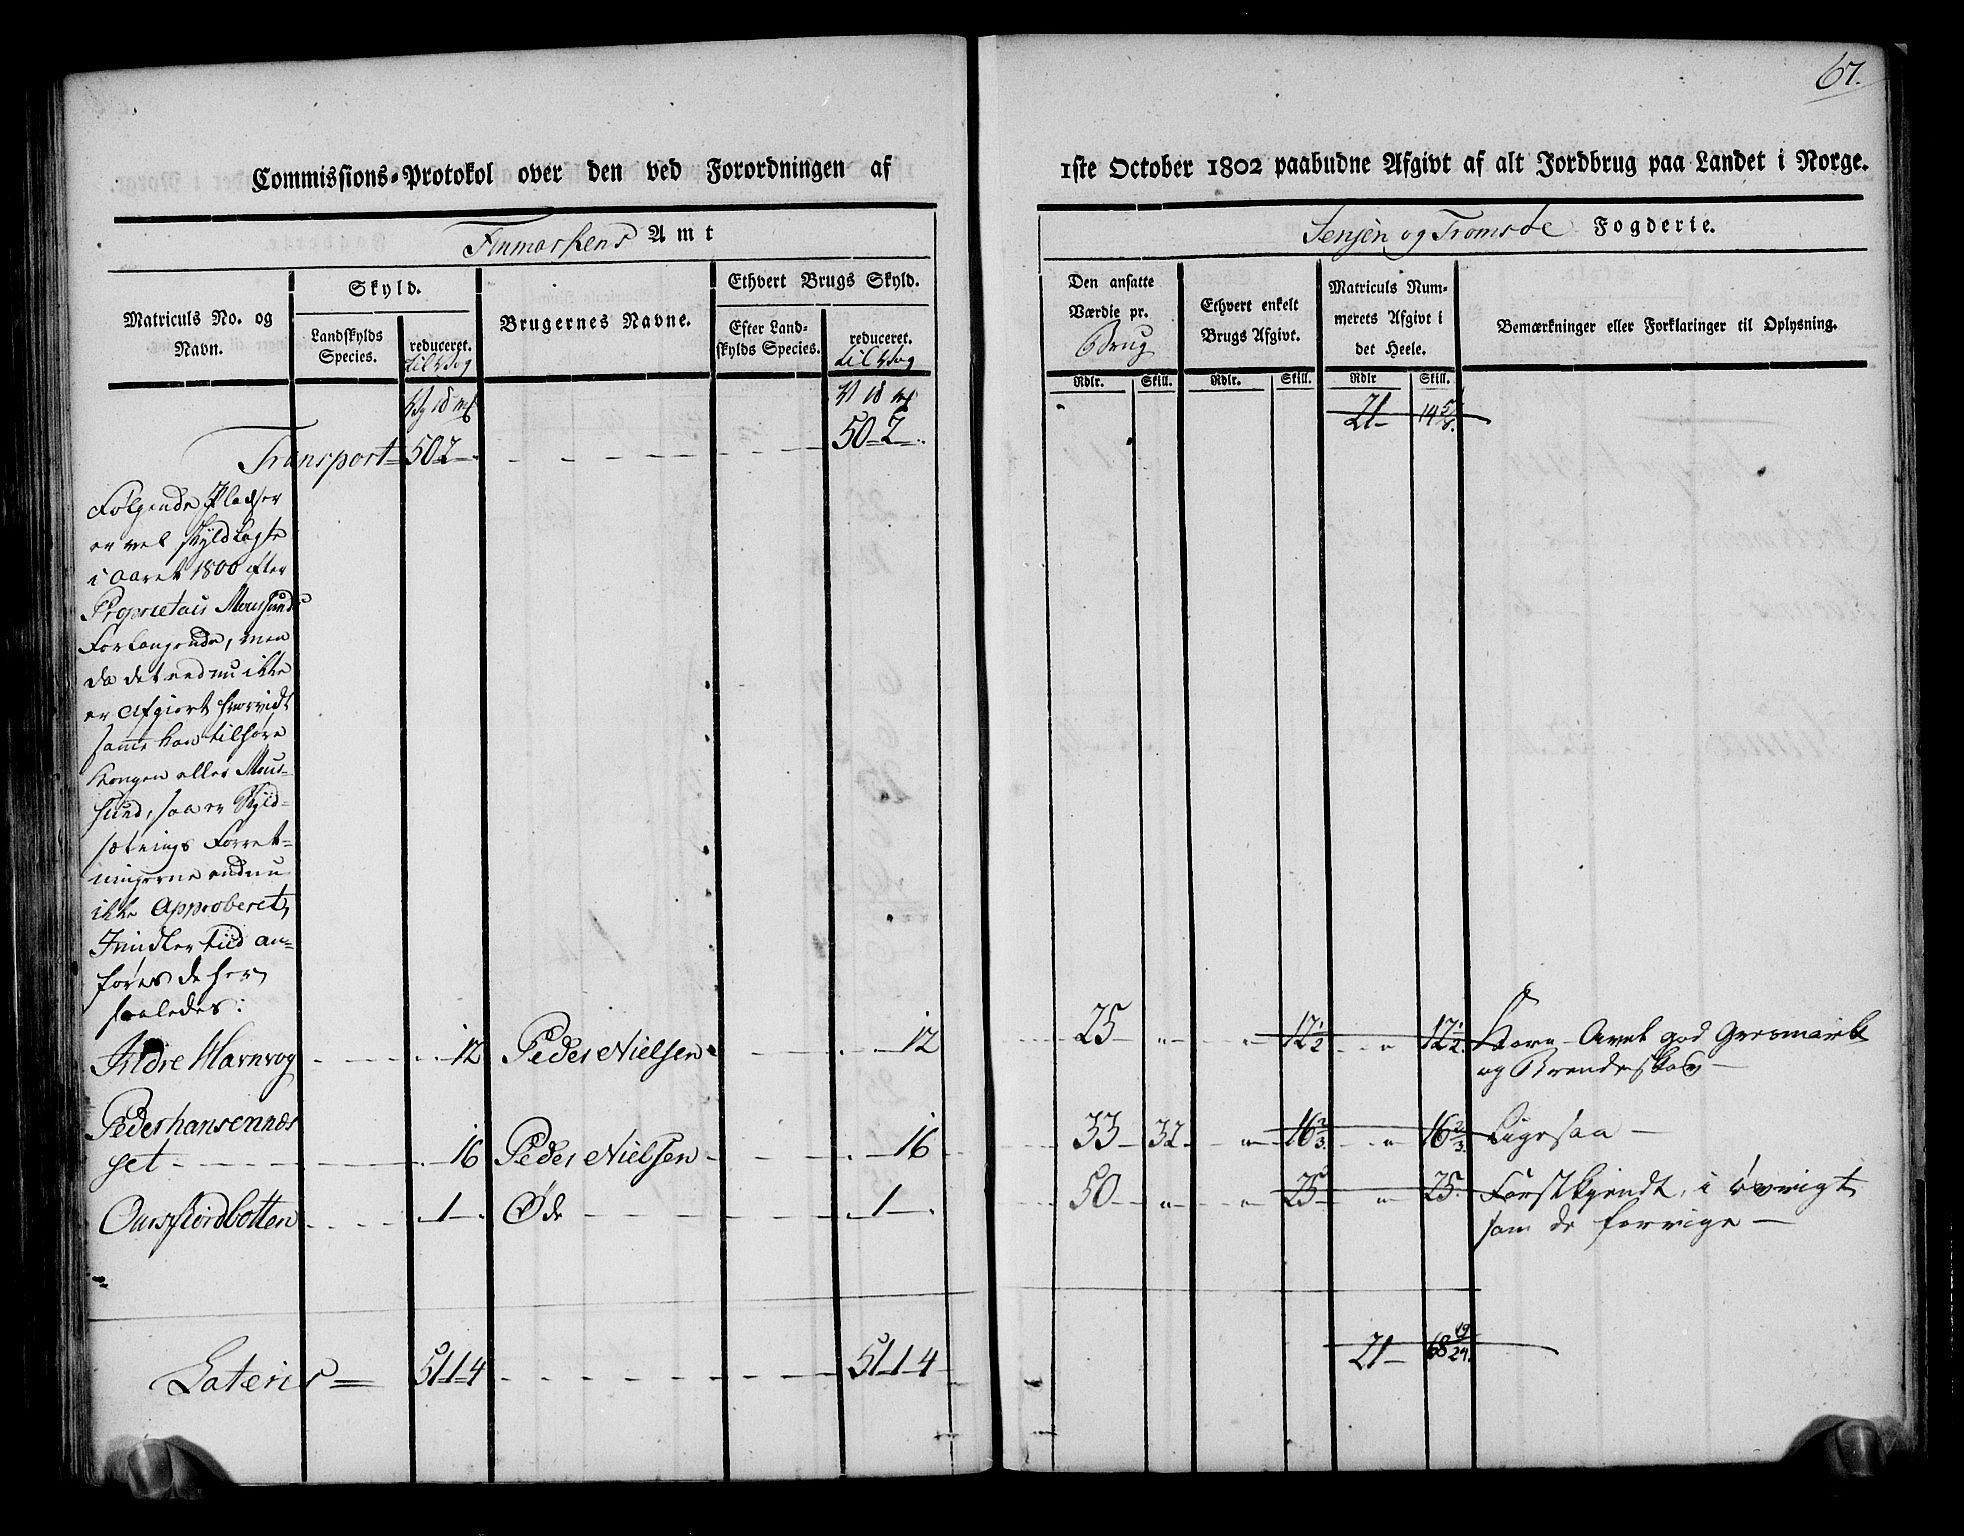 67.
Commissions-Protokol over den ved Forordningen af
1ste October 1802 paabudne Afgivt af alt Jordbrug paa Landet i Norge.
Finmarkens Amt
Senjen og Tromsøe Fogderie.
Matriculs No. og Navn.
Skyld.
Landskylds Species.
reduceret.
til Vog
Brugernes Navne.
Ethvert Brugs Skyld.
Efter Landskylds Species.
reduceret.
til Vog
Den ansatte Værdie pr.
Brug
Ethvert enkelt Brugs Afgivt.
Matriculs Nummerets Afgivt i det Heele.
Bemærkninger eller Forklaringer til Oplysning.
Rdlr. Skill. Rdlr. Skill. Rdlr Skill.
Transport 50 2 50 2 21 14
Følgende Pladser
er vel skyldlagte
i Aaret 1800 efter
Proprietair Moursunds
Forlangende, men
da det endnu ikke
er afgiort hvorvidt
samme kan tilhøre
Kongen eller Mour-
sund, saa er Skyld-
sætnings Forret-
ningerne endnu
ikke Approberet,
Imidlertiid an-
føres de her
saaledes:
Indre Havnvog 12 Peder Nielsen 12 25 " " 12½ " 12½ Korn-Avel god Græsmark
og Brendeskov
Pederhansennæs
set 16 Peder Nielsen 16 33 32 " 16⅔ " 16⅔ Ligesaa
Oursfiordbotten 1 Øde 1 50 " " 25 " 25 Frostkyndt, i øvrigt
som de forrige
Lateris 51 1 4 51 1 4 21 68 19/24